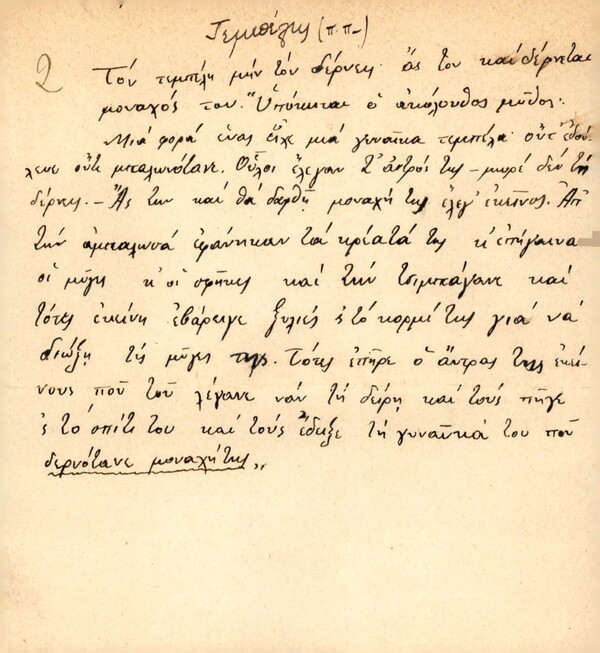 Τεμπέλης (π.π.)
2 Τόν τεμπέλη μήν τόν δέρνεις· ἄς τον καί δέρνεται
μοναχός του. "Ὑπόκειται ὁ ἀκόλουθος μῦθος:
Μιά φορά ἕνας εἶχε μιά γυναῖκα τεμπέλα· οὔτ' ἐδού-
λευε οὔτε μπαλωνότανε. Οὗλοι ἔλεγαν τ' ἀντρός της – μωρέ δέν τή
δέρνεις. – Ἄς την καί θά δαρθῇ μοναχή της ἔλεγ' ἐκεῖνος. Ἀπ'
τήν ἀμπαλωσά ἐφάνηκαν τά κρέατά της κ' ἐπήγαινα
οἱ μῦγες κ' οἱ σφῆκες καί τήν τσιμπάγανε καί
τότες ἐκείνη ἐβάρειγε ξυλιές ς τό κορμί της γιά νά
διώξῃ τίς μῦγες της. Τότες ἐπῆρε ὁ ἄντρας της ἐκεί-
νους ποῦ τοῦ λέγανε νάν τή δείρῃ καί τούς πῆγε
ς τό σπίτι του καί τούς ἔδειξε τή γυναῖκά του ποῦ
δερνότανε μοναχή της„